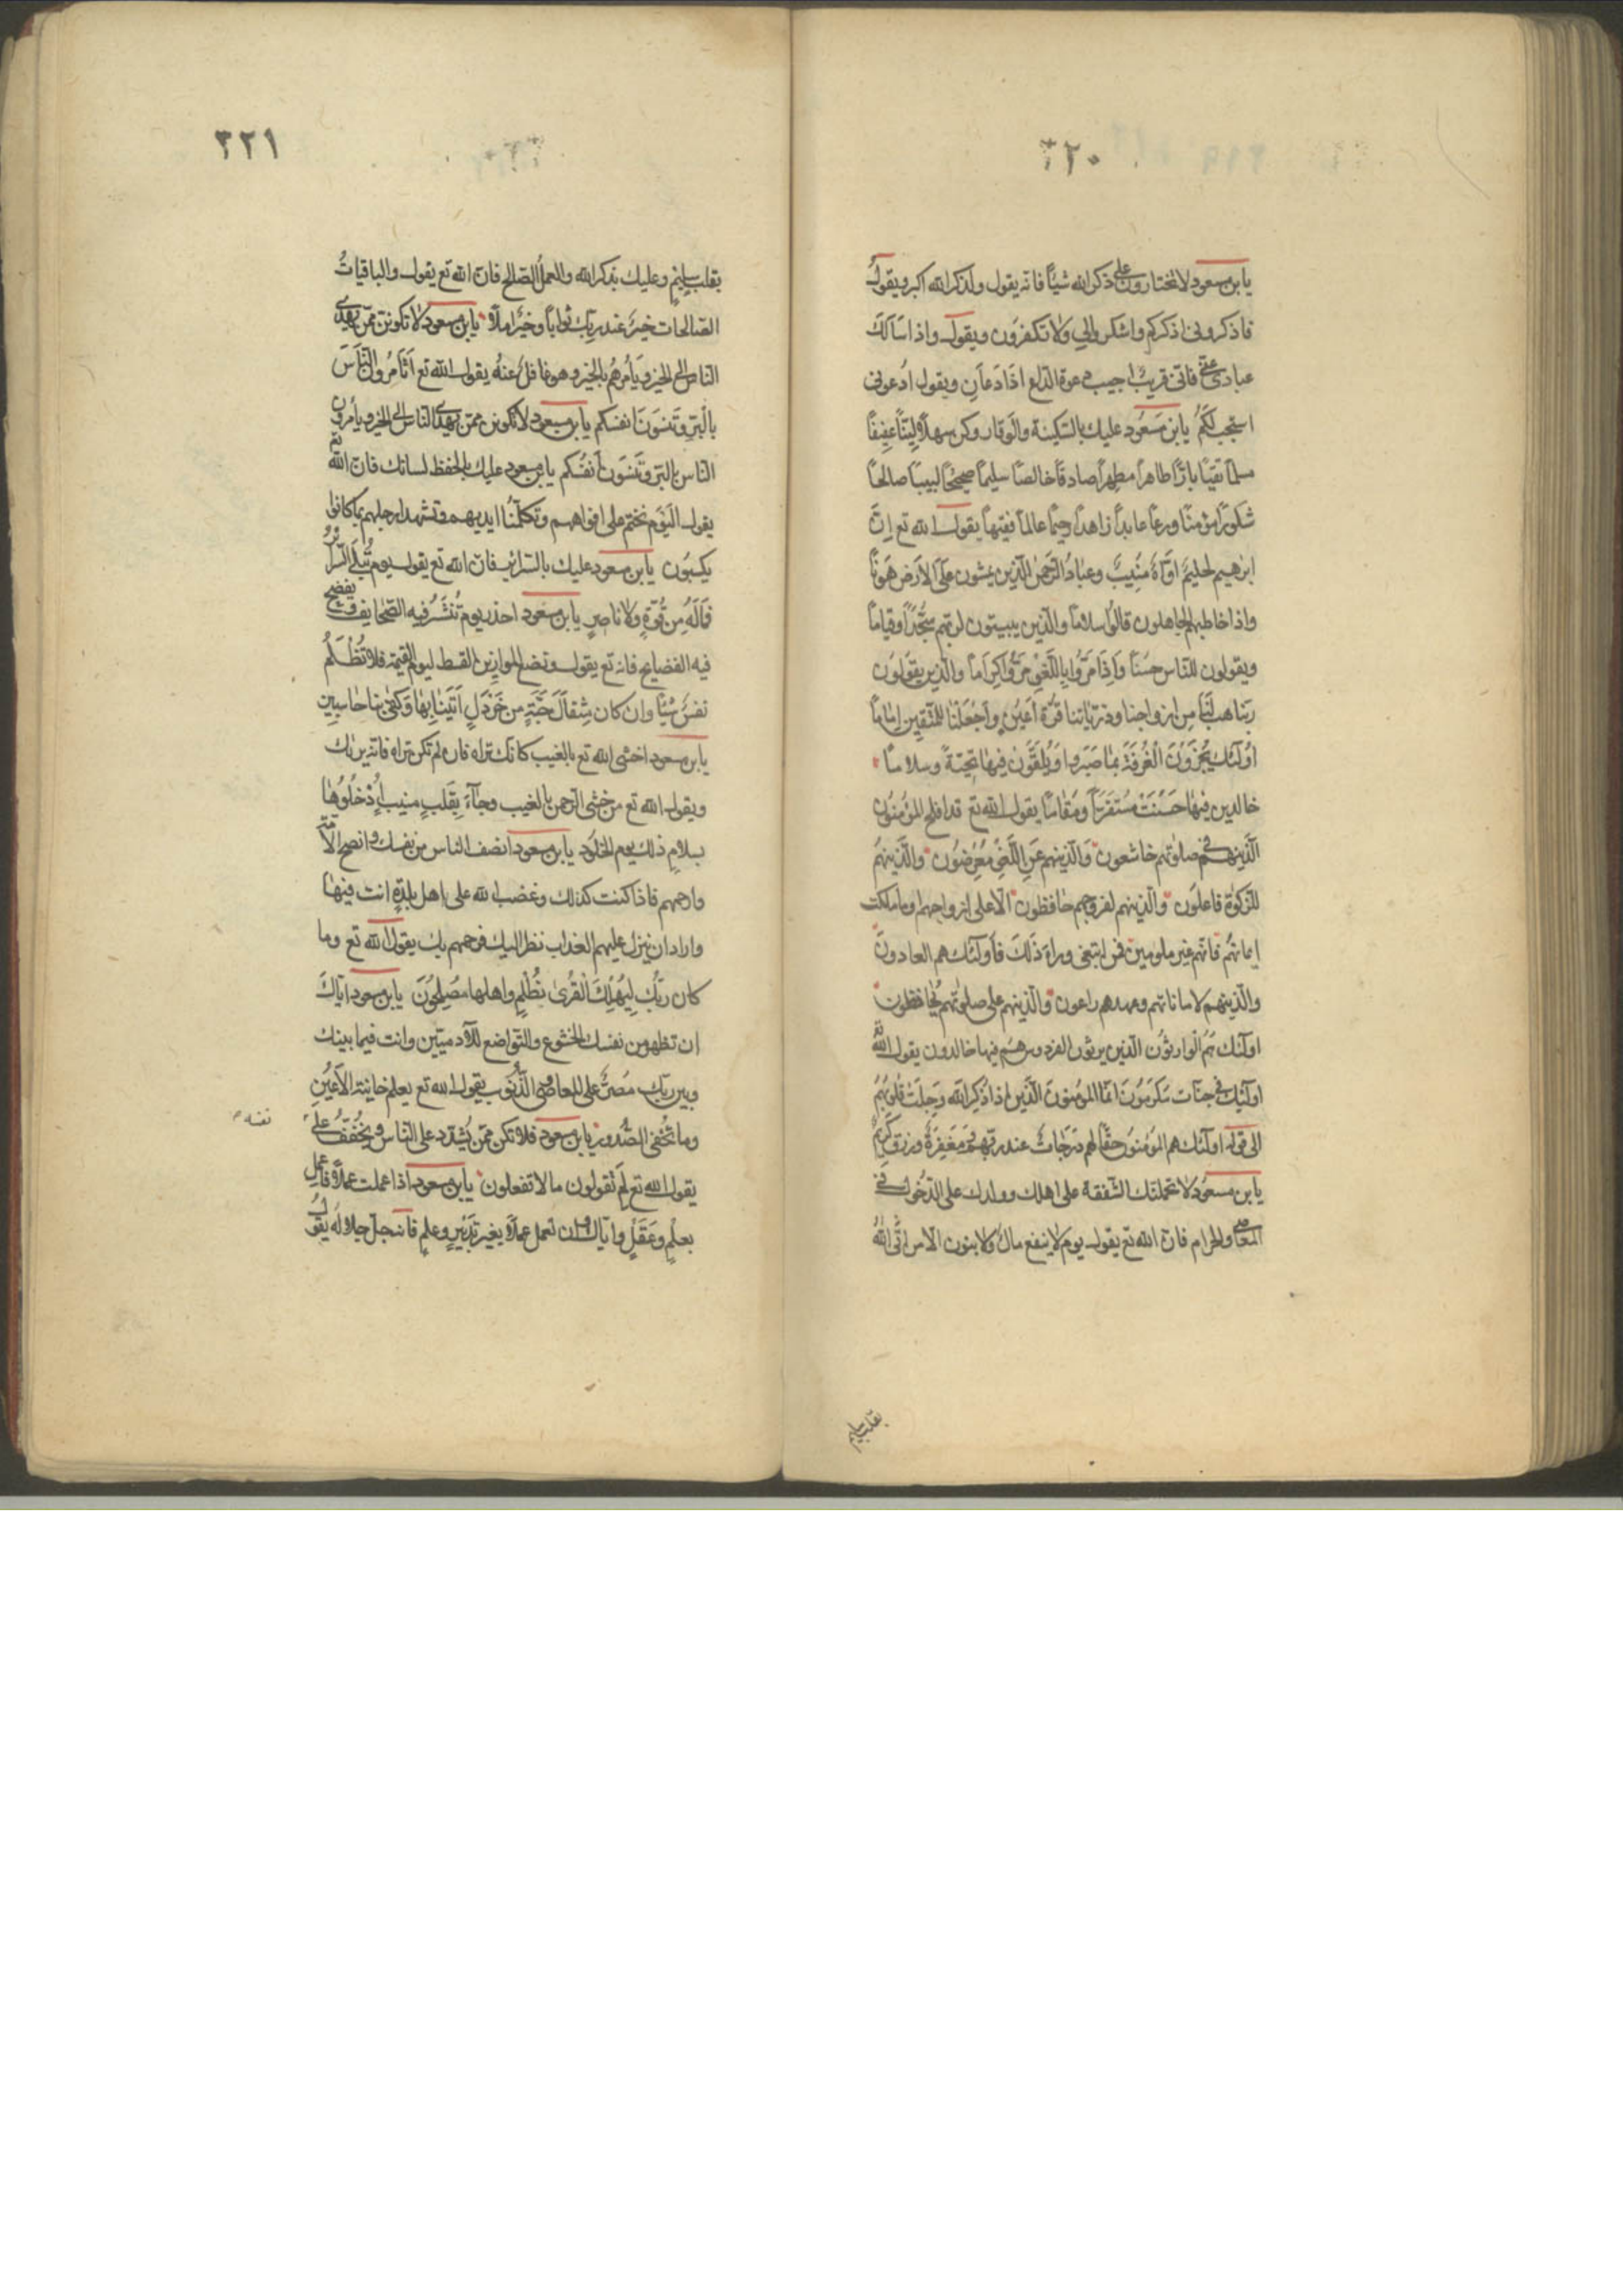 ٣٢٠
يابن مسعود لا تختارون على ذكر الله شيئا فانه يقول ولذكر الله اكبر ويقول
فاذكرونى اذكركم واشكروا لى ولا تكفرون ويقول واذا سألك
عبادى عنّى فانى قريب اجيب دعوة الداع اذا دعان ويقول ادعونى
استجب لكم يابن مسعود عليك بالسكينة والوقار وكن سهلا ليّنا عفيفا
مسلما تقيّا بارّا طاهرا مطهرا صادقا خالصا سليما صحيحا لبيبا صالحا
شكورا مؤمنا ورعا عابدا زاهدا رحيما عالما فقيها يقول الله تع انّ
ابرهيم لحليم اوّاه منيب وعباد الرّحمن الّذين يمشون على الارض هونا
واذا خاطبهم الجاهلون قالوا سلاما والّذين يبيتون لربّهم سجّدا وقياما
ويقولون للناس حسنا واذا مرّوا باللّغو مرّوا كراما والّذين يقولون
ربّنا هب لنا من ازواجنا وذريّاتنا قرّة اعين واجعلنا للمتّقين اماما
اولئك يجزون الغرفة بما صبروا ويلقّون فيها تحيّة وسلاما
خالدين فيها حسنت مستقرّا ومقاما يقول الله تع قد افلح المؤمنون
الّذينهم فى صلوتهم خاشعون والّذينهم عن اللّغو معرضون والّذينهم
للزكوة فاعلون والّذينهم لفروجهم حافظون الّا على ازواجهم او ما ملكت
ايمانهم فانّهم غير ملومين فمن ابتغى وراء ذلك فاولئك هم العادون
والّذينهم لاماناتهم وعهدهم راعون والّذينهم على صلوتهم يحافظون
اولئك هم الوارثون الّذين يرثون الفردوس هم فيها خالدون يقول الله تع
اولئك فى جنّات مكرمون انّما المؤمنون الّذين اذا ذكر الله وجلت قلوبهم
الى قوله اولئك هم المؤمنون حقّا لهم درجات عند ربّهم ومغفرة ورزق كريم
يابن مسعود لا تحملنّك الشفقة على اهلك وولدك على الدّخول فى
المعاصى والحرام فانّ الله تع يقول يوم لا ينفع مال ولا بنون الّا من اتى الله
بقلب سليم
٣٢١
بقلب سليم وعليك بذكر الله والعمل الصّالح فانّ الله تع يقول والباقيات
الصّالحات خير عند ربّك ثوابا وخير املا يابن مسعود لا تكوننّ ممّن يهدى
النّاس الى الخير ويأمرهم بالخير وهو غافل عنه يقول الله تع اتأمرون النّاس
بالبرّ وتنسون انفسكم يابن مسعود لا تكونن ممن يهدى الناس الى الخير ويأمرون
الناس بالبر وتنسون أنفسكم يابن مسعود عليك بالحفظ لسانك فانّ الله تع
يقول اليوم نختم على افواههم وتكلّمنا ايديهم وتشهد ارجلهم بما كانوا
يكسبون يابن مسعود عليك بالسّرائر فانّ الله تع يقول يوم تبلى السّرائر
فما له من قوّة ولا ناصر يابن مسعود احذر يوم تنشر فيه الصّحايف وتفضح
فيه الفضايح فانه تع يقول ونضع الموازين القسط ليوم القيمة فلا تظلم
نفس شيئا وان كان مثقال حبّة من خردل اتينا بها وكفى بنا حاسبين
يابن مسعود اخشى الله تع بالغيب كانّك تراه فان لم تكن تراه فانه يراك
ويقول الله تع من خشى الرحمن بالغيب وجاء بقلب منيب ادخلوها
بسلام ذلك يوم الخلود يابن مسعود انصف الناس من نفسك وانصح الأمّة
وارحمهم فاذا كنت كذلك وغضب الله على اهل بلدة انت فيها
واراد ان ينزل عليهم العذاب نظر اليك فرحمهم بك يقول الله تع وما
كان ربّك ليهلك القرى بظلم واهلها مصلحون يابن مسعود ايّاك
ان تظهر من نفسك الخشوع والتّواضع للآدميّين وانت فيما بينك
وبين ربّك مصرّ على المعاصى والذّنوب يقول الله تع يعلم خاينة الأعين
وما تخفى الصّدور يابن مسعود فلا تكن ممّن يشدّد على النّاس ويخفّف على
نفسه
يقول الله تع لم تقولون ما لا تفعلون يابن مسعود اذا عملت عملا فاعمل
بعلم وعقل وايّاك وان تعمل عملا بغير تدبير وعلم فانه جلّ جلاله يقول